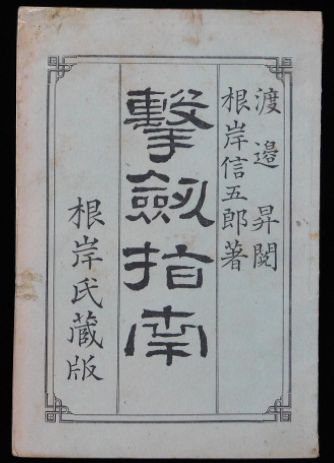 渡邉昇閲
根岸信五郎著
擊劔指南
根岸氏藏版